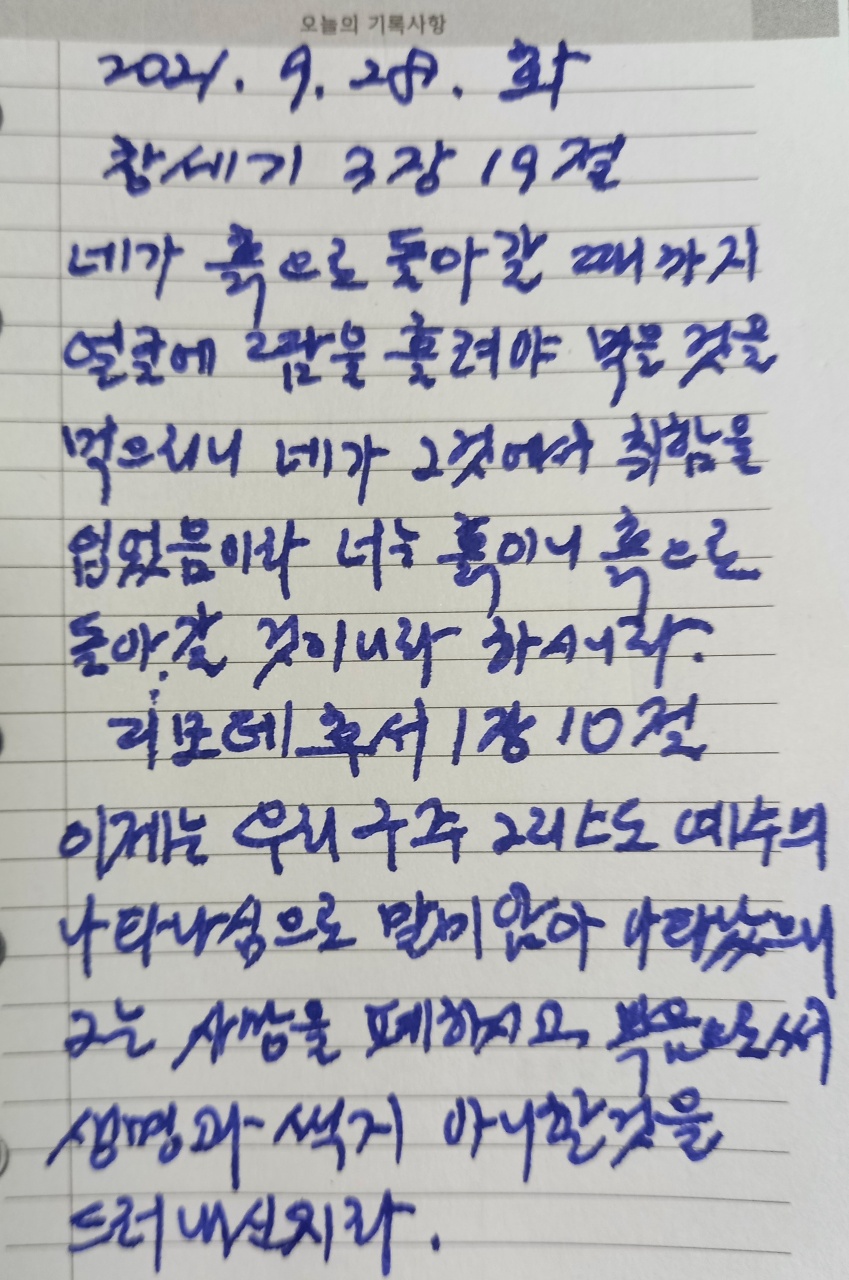 오늘의 기록사항
2021. 9. 28. 화
창세기 3장 19절
네가 흙으로 돌아갈 때까지
얼굴에 땀을 흘려야 먹을 것을
먹으리니 네가 그것에서 취함을
입었음이라 너는 흙이니 흙으로
돌아갈 것이니라 하시니라.
디모데후서 1장 10절
이제는 우리 구주 그리스도 예수의
나타나심으로 말미암아 나타났으니
그는 사망을 폐하시고 복음으로써
생명과 썩지 아니할것을
드러내신지라.